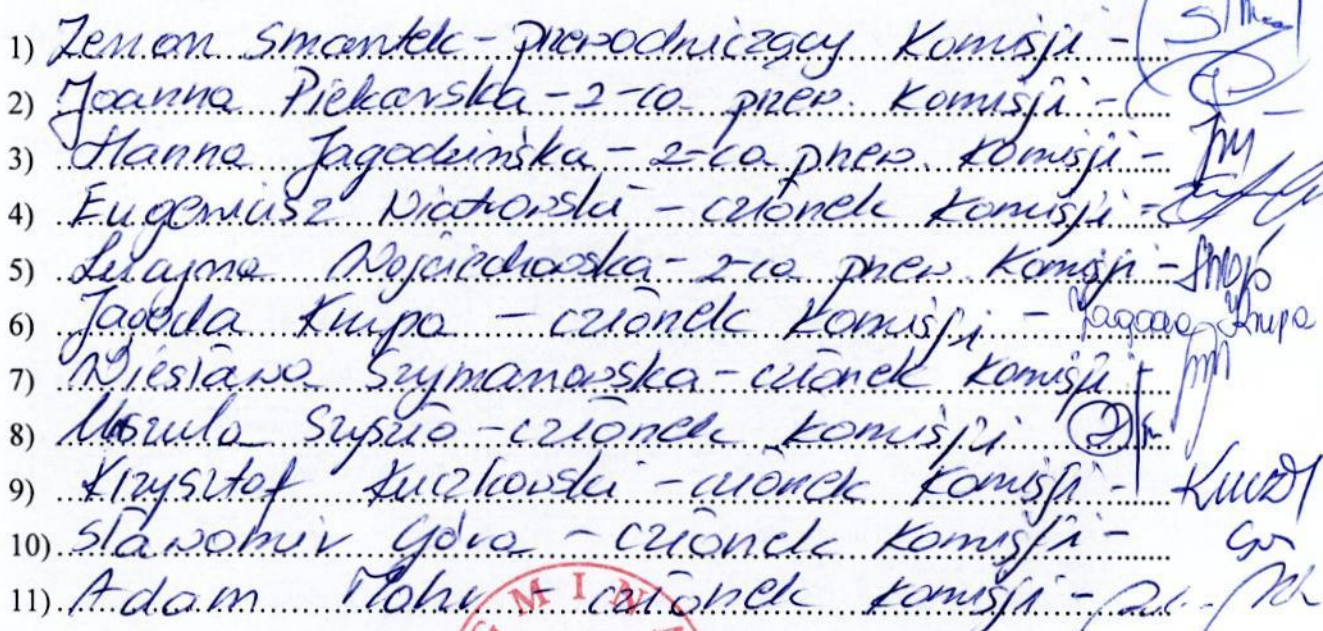 1) Zenon Smantek - przewodniczący Komisji -
2) Joanna Piekarska - z-ca przew. Komisji -
3) Hanna Jagodzińska - z-ca przew. Komisji -
4) Eugeniusz Wiatrowski - członek Komisji -
5) Lucyna Wojciechowska - z-ca przew. Komisji -
6) Jagoda Krupa - członek Komisji - Jagoda Krupa
7) Wiesława Szymanowska - członek Komisji -
8) Urszula Szyszło - członek Komisji
9) Krzysztof Kuczkowski - członek Komisji -
10) Sławomir Góra - członek Komisji -
11) Adam - członek Komisji -
MIN